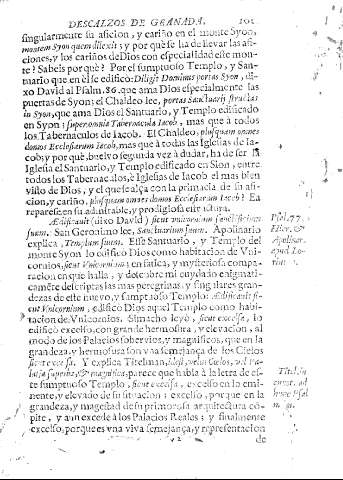 DESCALZOS DE GRANADA. 101
singularmente su aficion, y cariño en el monte Syon,
montem Syon quem dilexit; y por què se ha de llevar las afi-
ciones, y los cariños de Dios con especialidad este mon-
te? Sabeis por què? Por el sumptuoso Templo, y San-
tuario que en èl se edificò: Diligit Dominus portas Syon, di-
xo David al Psalm. 86. que ama Dios especialmente las
puertas de Syon; el Chaldeo lee, portas Sanctuarij structas
in Syon, que ama Dios el Santuario, y Templo edificado
en Syon; super omnia Tabernacula Iacob, mas que à todos
los Tabernaculos de Iacob. El Chaldeo, plusquam omnes
domos Ecclesiarum Iacob, mas que à todas las Iglesias de Ia-
cob; y por què, buelvo segunda vez à dudar, ha de ser
Iglesia el Santuario, y Templo edificado en Sion, entre
todos los Tabernaculos, è Iglesias de Iacob el mas bien
visto de Dios, y el que se alça con la primacia de su afi-
cion, y cariño, plusquam omnes domos Ecclesiarum Iacob? Ea
reparese en su admirable, y prodigiosa estructura.
Ædificavit (dixo David) sicut unicornium sanctificium
suum. San Geronimo lee, Sanctuarium suum. Apolinario
explica, Templum suum. Este Santuario, y Templo del
monte Syon lo edificò Dios como habitacion de Vni-
cornios, sicut Vnicornium; enfatica, y mysteriosa compa-
racion en que halla, y descubre mi cuydado enigmati-
camente descriptas las mas peregrinas, y singulares gran-
dezas de este nuevo, y sumptuoso Templo: Ædificavit si-
cut Vnicornium, edificò Dios aquel Templo como habita-
cion de Vnicornios. Simacho leyò, sicut excelsa, lo
edificò excelso, con grande hermosura, y elevacion, al
modo de los Palacios sobervios, y magnificos, que en la
grandeza, y hermosura son vna semejança de los Cielos
sicut excelsa. Y explica Titelman,
parece que habla à la letra de es-
te sumptuoso Templo, sicut excelsa, excelso en lo emi-
nente, y elevado de su situacion: excelso, porque en la
grandeza, y magestad de su primorosa arquitectura cõ-
pite, y aun excede à los Palacios Reales; y finalmente
excelso, porque es vna viva semejança, y representacion
de
Psal. 77.
Apolinar.
apud Lo-